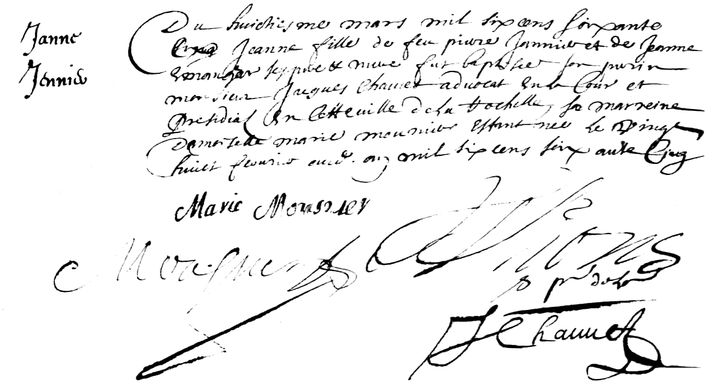 Janne
Jennie
Du huictiesme mars mil six cens soixante
Cinq Jeanne fille de feu pierre Jannier et de Jeanne
ses pere et mere fut baptisee son parin
monsieur Jacques Chauvet advocat en la Cour et
Presidial en cette ville de la Rochelle, sa marreine
Damoiselle marie mounier Estant nee le Vingt
huict febvrier aud. an mil six cens soix ante Cinq
Marie Mousnier
J Chauvet